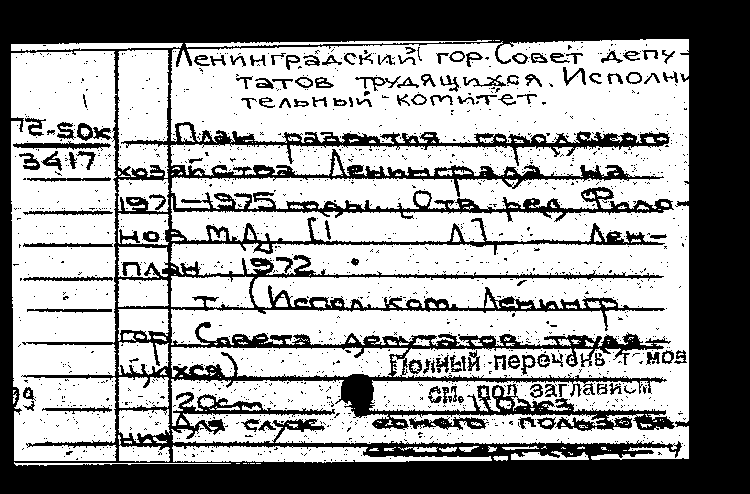 Ленинградский гор. Совет депу-
татов трудящихся. Исполни
тельный комитет.
72-50к
3417
План развития городского
хозяйства Ленинграда на
1971-1975 годы. [Отв. ред. Фило-
нов М.Д]. [1 Л], Лен-
план, 1972.
т. (Испол. ком. Ленингр.
гор. Совета депутатов трудя-
щихся)
Полный перечень т. моа
см. под заглавием
20см 110экз
Для служебного пользова-
ния